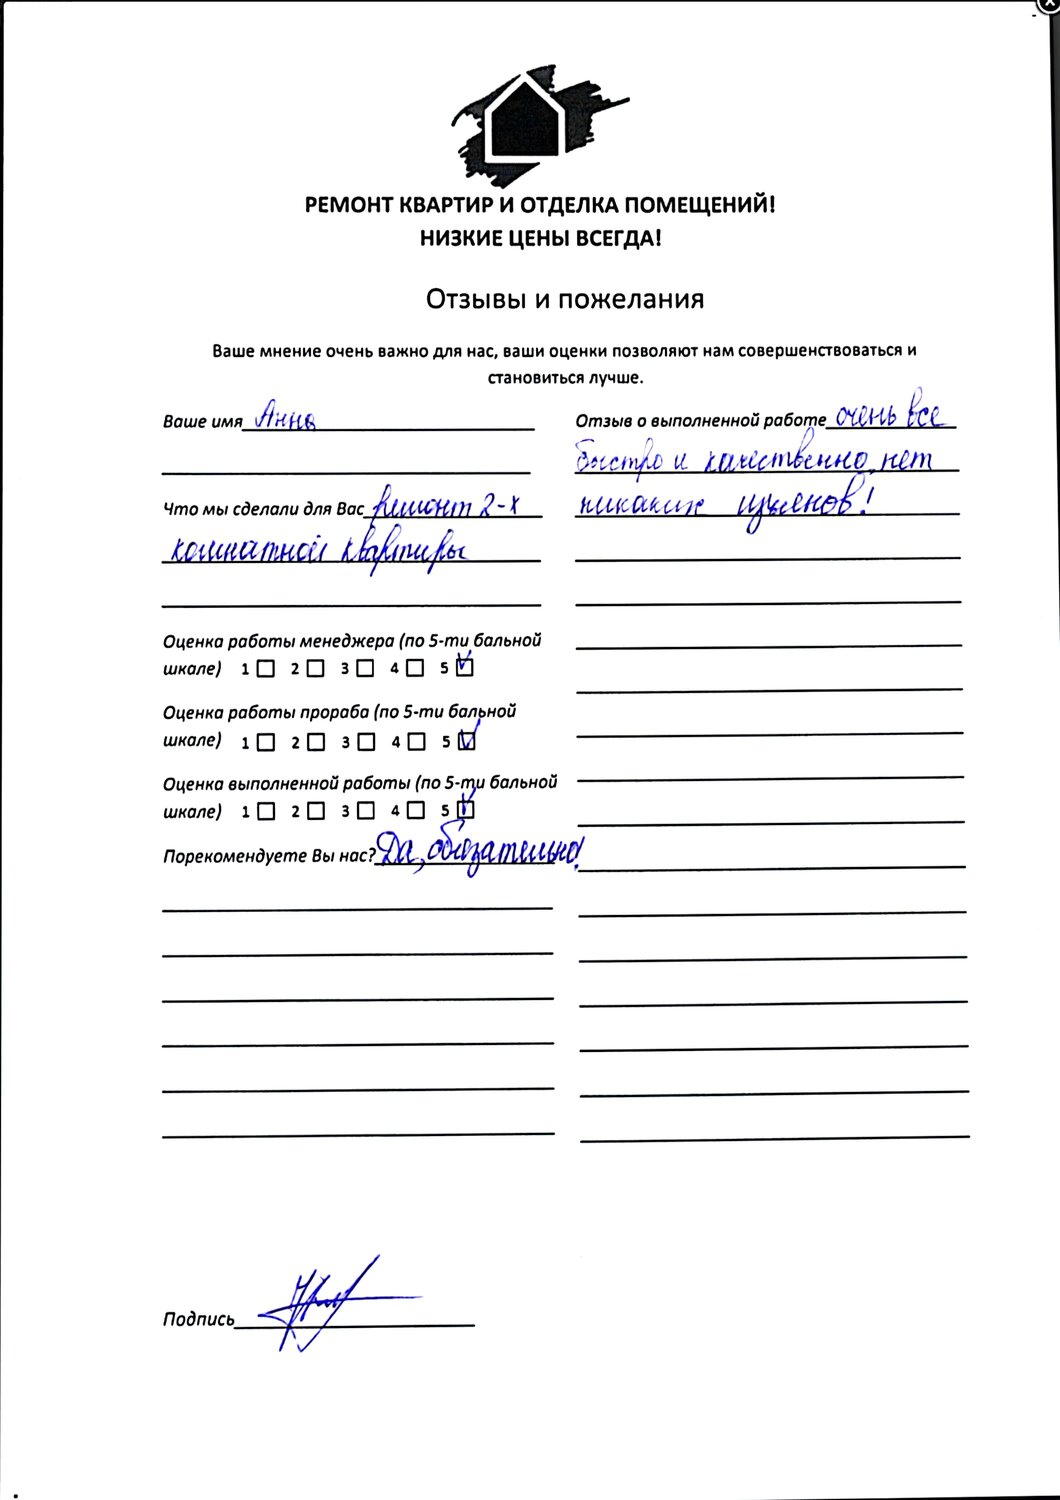 РЕМОНТ КВАРТИР И ОТДЕЛКА ПОМЕЩЕНИЙ!
НИЗКИЕ ЦЕНЫ ВСЕГДА!
Отзывы и пожелания
Ваше мнение очень важно для нас, ваши оценки позволяют нам совершенствоваться и
становиться лучше.
Ваше имя Анна
Что мы сделали для Вас ремонт 2-х
комнатной квартиры
Оценка работы менеджера (по 5-ти бальной
шкале) 1 2 3 4 5
Оценка работы прораба (по 5-ти бальной
шкале) 1 2 3 4 5
Оценка выполненной работы (по 5-ти бальной
шкале) 1 2 3 4 5
Порекомендуете Вы нас? Да, обязательно!
Отзыв о выполненной работе очень все
быстро и качественно, нет
никаких изъянов!
Подпись